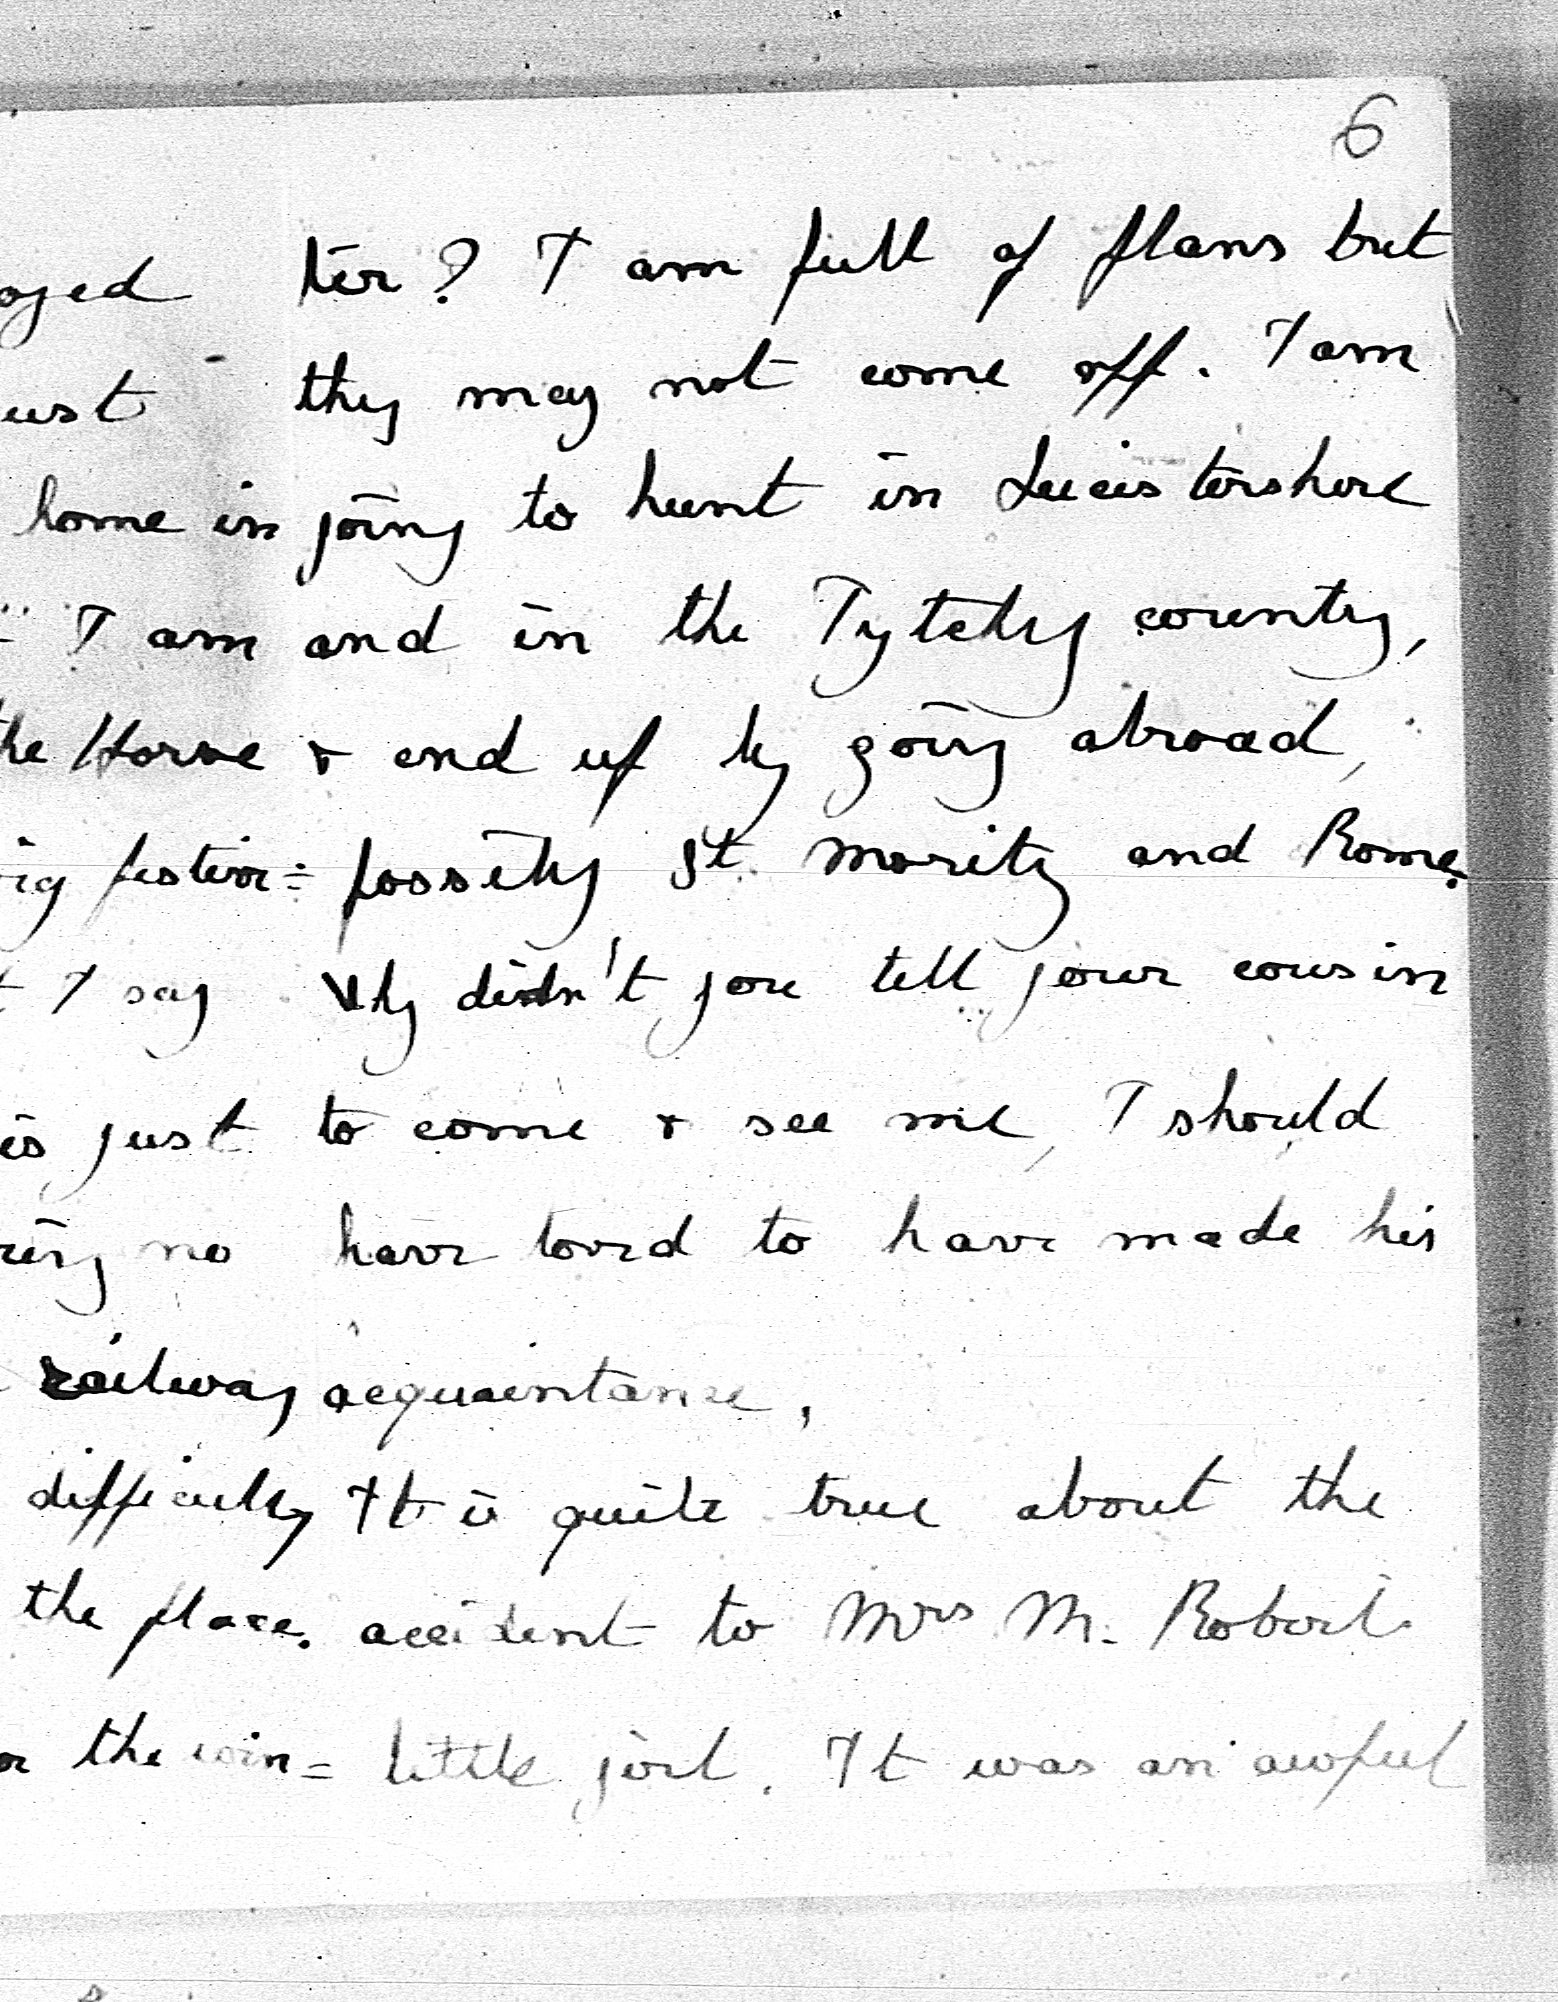 home in
I am
the Horse
festivi=
I say
is just
no
railway
difficulty
the place.
the win=
6
ter? I am full of plans but
they may not come off. I am
going to hunt in Leicestershire
and in the Pytchley country,
& end up by going abroad,
possibly St. Moritz and Rome.
Why didn't you tell your cousin
to come & see me, I should
have loved to have made his
acquaintance,
It is quite true about the
accident to Mrs M. Roberts
little girl. It was an awful